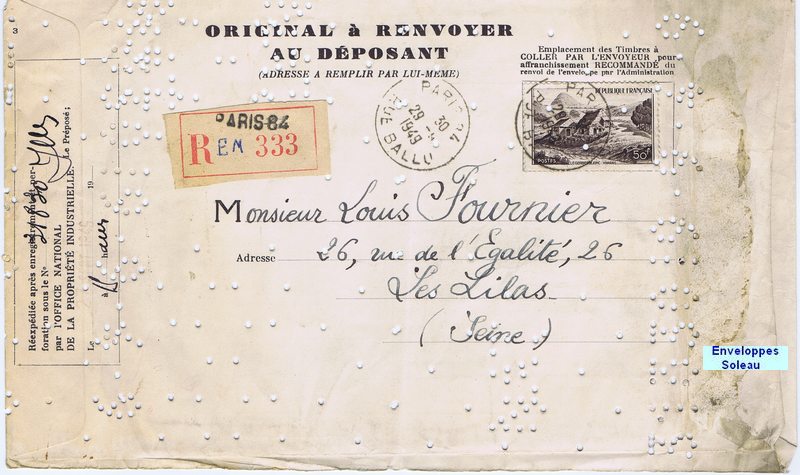 3
ORIGINAL à RENVOYER
AU DÉPOSANT
(ADRESSE A REMPLIR PAR LUI-MEME)
Emplacement des Timbres à
COLLER PAR L'ENVOYEUR pour
affranchissement RECOMMANDÉ du
renvoi de l'enveloppe par l'Administration
PARIS-84
R EM 333
PARIS 78
30
29 -
1949
RUE BALLU
REPUBLIQUE FRANÇAISE
POSTES
50F
Réexpédiée après enregistrement et per-
foration sous le N°
par l'OFFICE NATIONAL
DE LA PROPRIÉTÉ INDUSTRIELLE.
Le 19
à heures
Le Préposé;
Monsieur Louis Fournier
Adresse 26, rue de l'Egalité, 26
Les Lilas
(Seine)
Enveloppes
Soleau